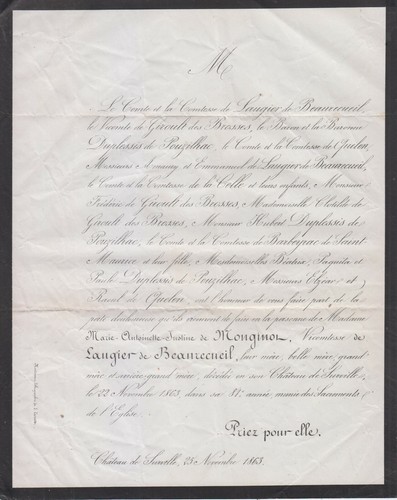 M
Le Comte et la Comtesse de Laugier de Beaurecueil,
le Vicomte de Giroult des Brosses, le Baron et la Baronne
Duplessis de Pouzilhac, le Comte et la Comtesse de Quelen,
Messieurs Amaury et Emmanuel de Laugier de Beaurecueil,
le Comte et la Comtesse de la Celle et leurs enfants, Monsieur
Frédéric de Giroult des Brosses, Mademoiselle Clotilde de
Giroult des Brosses, Monsieur Hubert Duplessis de
Pouzilhac, le Comte et la Comtesse de de Saint
Maurice et leur fille, Mesdemoiselles Béatrix, Paquita et
Paule Duplessis de Pouzilhac, Messieurs Elzéar et
Raoul de Quelen, ont l'honneur de vous faire part de la
perte douloureuse qu'ils viennent de faire en la personne de Madame
Marie-Antoinette-Justine de Monginot, Vicomtesse de
Laugier de Beaurecueil, leur mère, belle mère, grand
mère et arrière-grand'mère, décédée en son Château de Surville,
le 22 Novembre 1863, dans sa 81e année, munie des Sacrements
de l'Eglise.
Priez pour elle.
Château de Surville, 25 Novembre 1863.